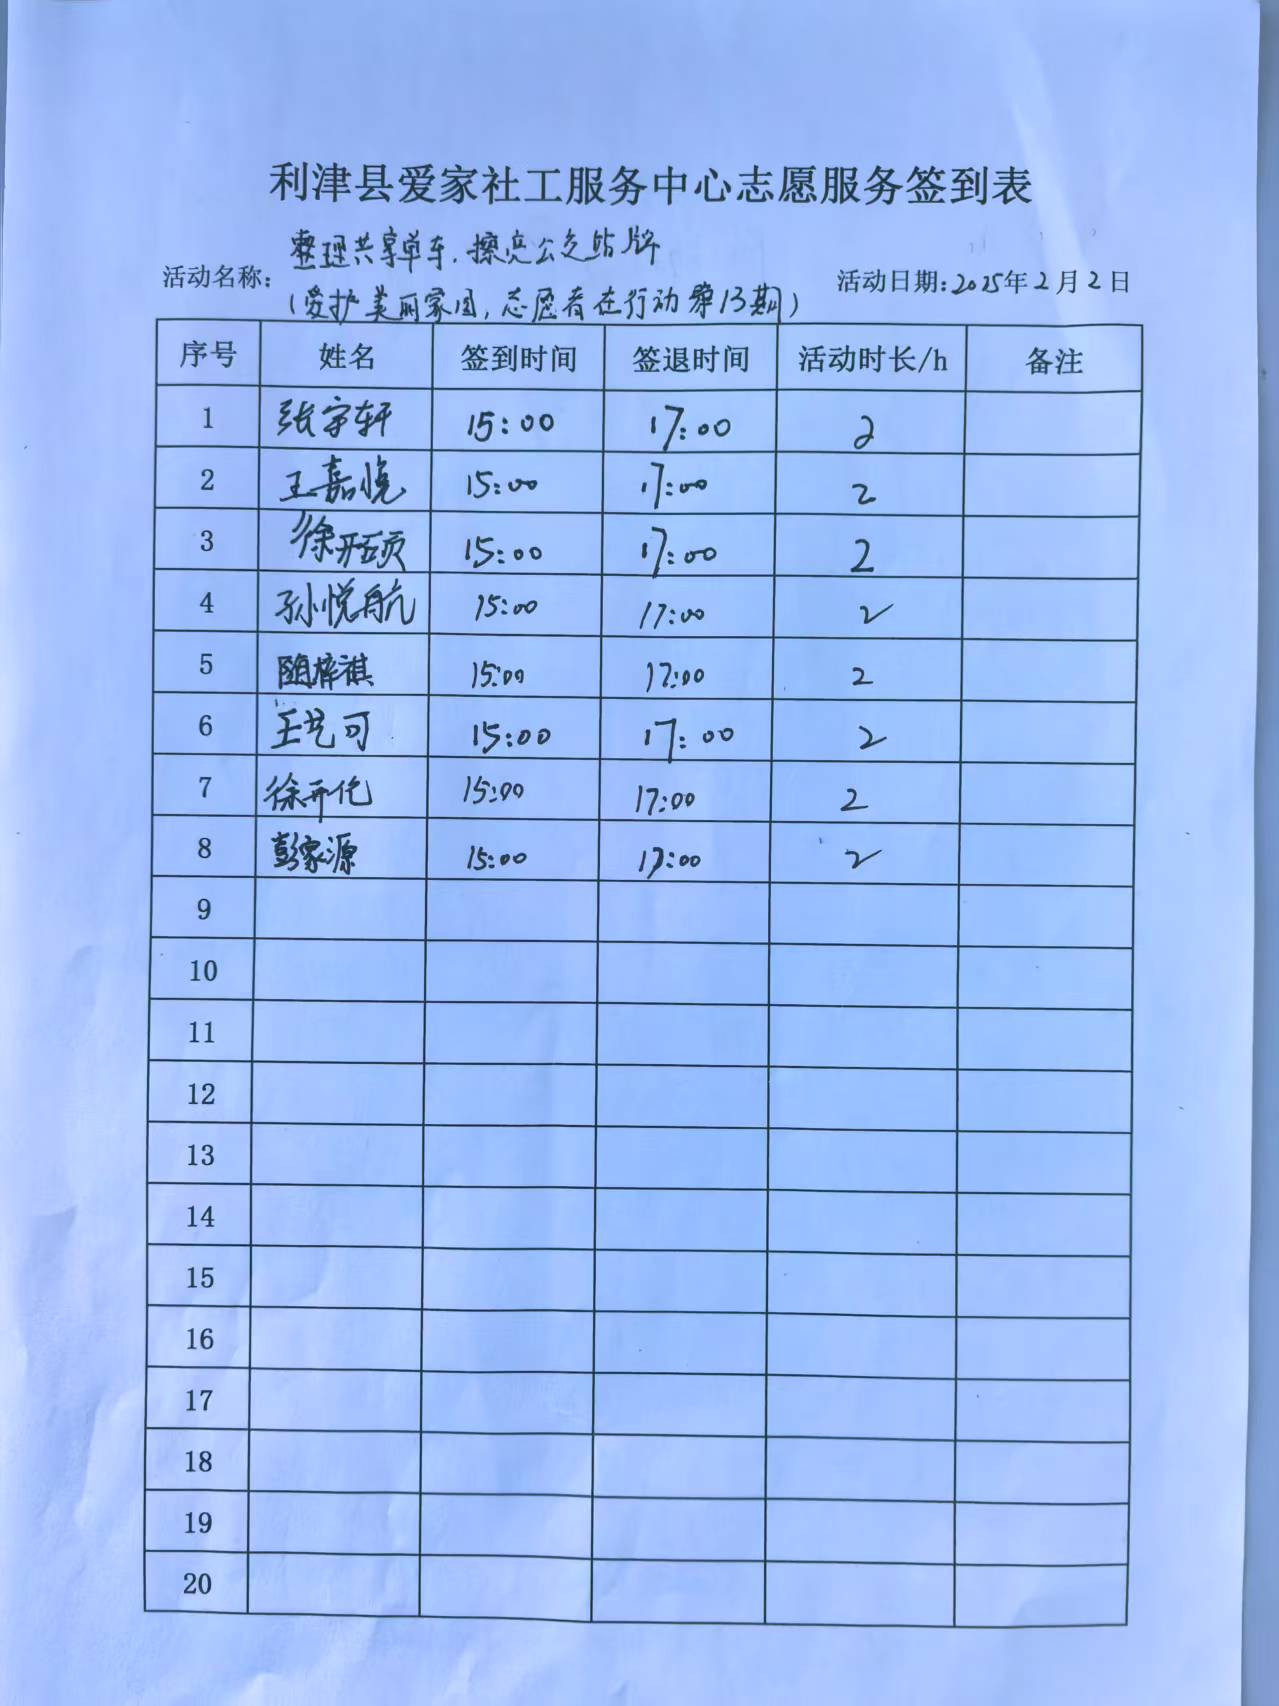 利津县爱家社工服务中心志愿服务签到表
整理共享单车.擦亮公交站牌
活动名称: 活动日期:2025年2月2日
(爱护美丽家园,志愿者在行动第13期)
序号 姓名 签到时间 签退时间 活动时长/h 备注
1 张宇轩 15:00 17:00 2
2 王嘉悦 15:00 17:00 2
3 徐开硕 15:00 17:00 2
4 孙悦航 15:00 17:00 2
5 隋梓祺 15:00 17:00 2
6 王艺可 15:00 17:00 2
7 徐开伦 15:00 17:00 2
8 彭家源 15:00 17:00 2
9
10
11
12
13
14
15
16
17
18
19
20